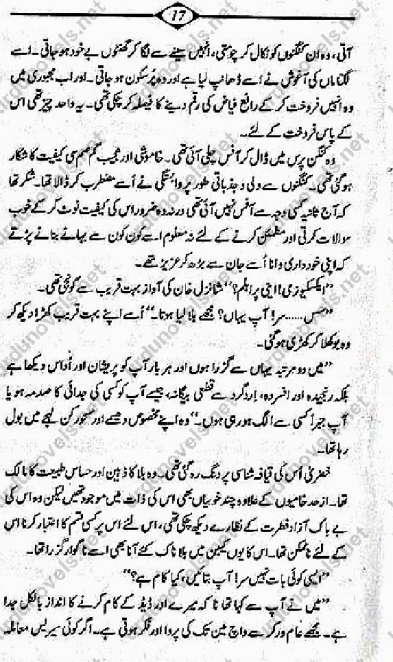 17
آتی، وہ ان کنگنوں کو نکال کر چومتی، انہیں سینے سے لگا کر گھنٹوں بے خود ہو جاتی۔ اسے
لگتا ماں کی آغوش نے اُسے ڈھانپ لیا ہے اور وہ پر سکون ہو جاتی۔ اور اب مجبوری میں
وہ انہیں فروخت کر کے رافع فیاض کی رقم دینے کا فیصلہ کر چکی تھی۔ یہ واحد چیز تھی اس
کے پاس فروخت کے لئے۔
وہ کنگن پرس میں ڈال کر آفس چلی آئی تھی۔ خاموشی اور عجیب گم صم سی کیفیت کا شکار
ہو گئی تھی۔ کنگنوں سے دلی و جذباتی طور پر وابستگی نے اُسے مضطرب کر ڈالا تھا۔ شکر تھا
کہ آج ثانیہ کسی وجہ سے آفس نہیں آئی تھی ورنہ وہ ضرور اس کی کیفیت نوٹ کر کے خوب
سوالات کرتی اور مطمئن کرنے کے لئے نہ معلوم اسے کون کون سے بہانے بنانے پڑتے
کہ اپنی خودداری و انا اُسے جان سے بڑھ کر عزیز تھے۔
”ایکسکیوزمی! اینی پرابلم؟“ شانزل خان کی آواز بہت قریب سے گونجی تھی۔
”سس.....سر! آپ یہاں؟ مجھے بلا لیا ہوتا۔“ اُسے اپنے بہت قریب کھڑا دیکھ کر
وہ بوکھلا کر کھڑی ہو گئی۔
”میں دو مرتبہ یہاں سے گزرا ہوں اور ہر بار آپ کو پریشان اور اُداس دیکھا ہے
بلکہ رنجیدہ اور افسردہ، اِردگرد سے قطعی بیگانہ، جیسے آپ کو کسی کی جدائی کا صدمہ ہو یا
آپ جبراً کسی سے الگ ہو رہی ہوں۔“ وہ اپنے مخصوص دھیمے اور مسحور کن لہجے میں بول
رہا تھا۔
خضریٰ اُس کی قیافہ شناسی پر دنگ رہ گئی تھی۔ وہ بلا کا ذہین اور حساس طبیعت کا مالک
تھا۔ از حد خامیوں کے علاوہ چند خوبیاں بھی اس کی ذات میں موجود تھیں لیکن وہ اس کی
بے باک آزاد فطرت کے نظارے دیکھ چکی تھی، اس لئے اس پر کسی قسم کا اعتبار کرنا اس
کے لئے ناممکن تھا۔ اس کا یوں کیبن میں بلا ناک کئے آنا بھی اسے ناگوار گزرا تھا۔
”ایسی کوئی بات نہیں سر! آپ بتائیں، کیا کام ہے؟“
”میں نے آپ سے کہا تھا نا کہ میرے اور ڈیڈ کے کام کرنے کا انداز بالکل جدا
ہے۔ مجھے عام ورکر سے واچ مین تک کی پروا اور فکر ہوتی ہے۔ اگر کوئی سیریس معاملہ